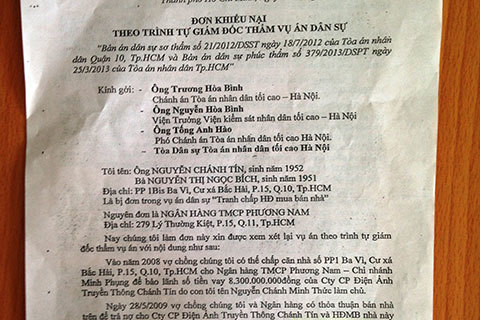 Thành phố Hồ Chí Minh,
ĐƠN KHIẾU NẠI
THEO TRÌNH TỰ GIÁM ĐỐC THẨM VỤ ÁN DÂN SỰ
"Bản án dân sự sơ thẩm số 21/2012/DSST ngày 18/7/2012 của Tòa án nhân
dân Quận 10, Tp.HCM và Bản án dân sự phúc thẩm số 379/2013/DSPT ngày
25/3/2013 của Tòa án nhân dân Tp.HCM"
Kính gởi: - Ông Trương Hòa Bình
Chánh án Tòa án nhân dân tối cao – Hà Nội.
- Ông Nguyễn Hòa Bình
Viện Trưởng Viện kiểm sát nhân dân tối cao – Hà Nội
- Ông Tống Anh Hào
Phó Chánh án Tòa nhân dân tối cao – Hà Nội
- Tòa Dân sự Tòa án nhân dân tối cao Hà Nội
Tôi tên: Ông NGUYỄN CHÁNH TÍN, sinh năm 1952
Bà NGUYỄN THỊ NGỌC BÍCH, sinh năm 1951
Địa chỉ: PP 1Bis Ba Vì, Cư xá Bắc Hải, P.15, Q.10, Tp.HCM
Là bị đơn trong vụ án dân sự "Tranh chấp HĐ mua bán nhà"
Nguyên đơn là NGÂN HÀNG TMCP PHƯƠNG NAM
Địa chỉ: 279 Lý Thường Kiệt, P.15, Q.11, Tp.HCM
Nay chúng tôi làm đơn này xin được xem xét lại vụ án theo trình tự giám
đốc thẩm vụ án với nội dung như sau:
Vào năm 2008 vợ chồng chúng tôi có thế chấp căn nhà số PP1 Ba Vì, Cư xá
Bắc Hải, P.15, Q.10, Tp.HCM cho Ngân hàng TMCP Phương Nam – Chi nhánh
Minh Phụng để bảo lãnh số tiền vay 8.300.000.000đồng của Cty CP Điện Ảnh
Truyền Thông Chánh Tín do con tôi tên Nguyễn Chánh Minh Thức làm chủ.
Ngày 28/5/2009 vợ chồng chúng tôi và Ngân hàng có thỏa thuận bán nhà
trên để trả nợ cho Cty CP Điện Ảnh Truyền Thông Chánh Tín và HĐMB nhà này